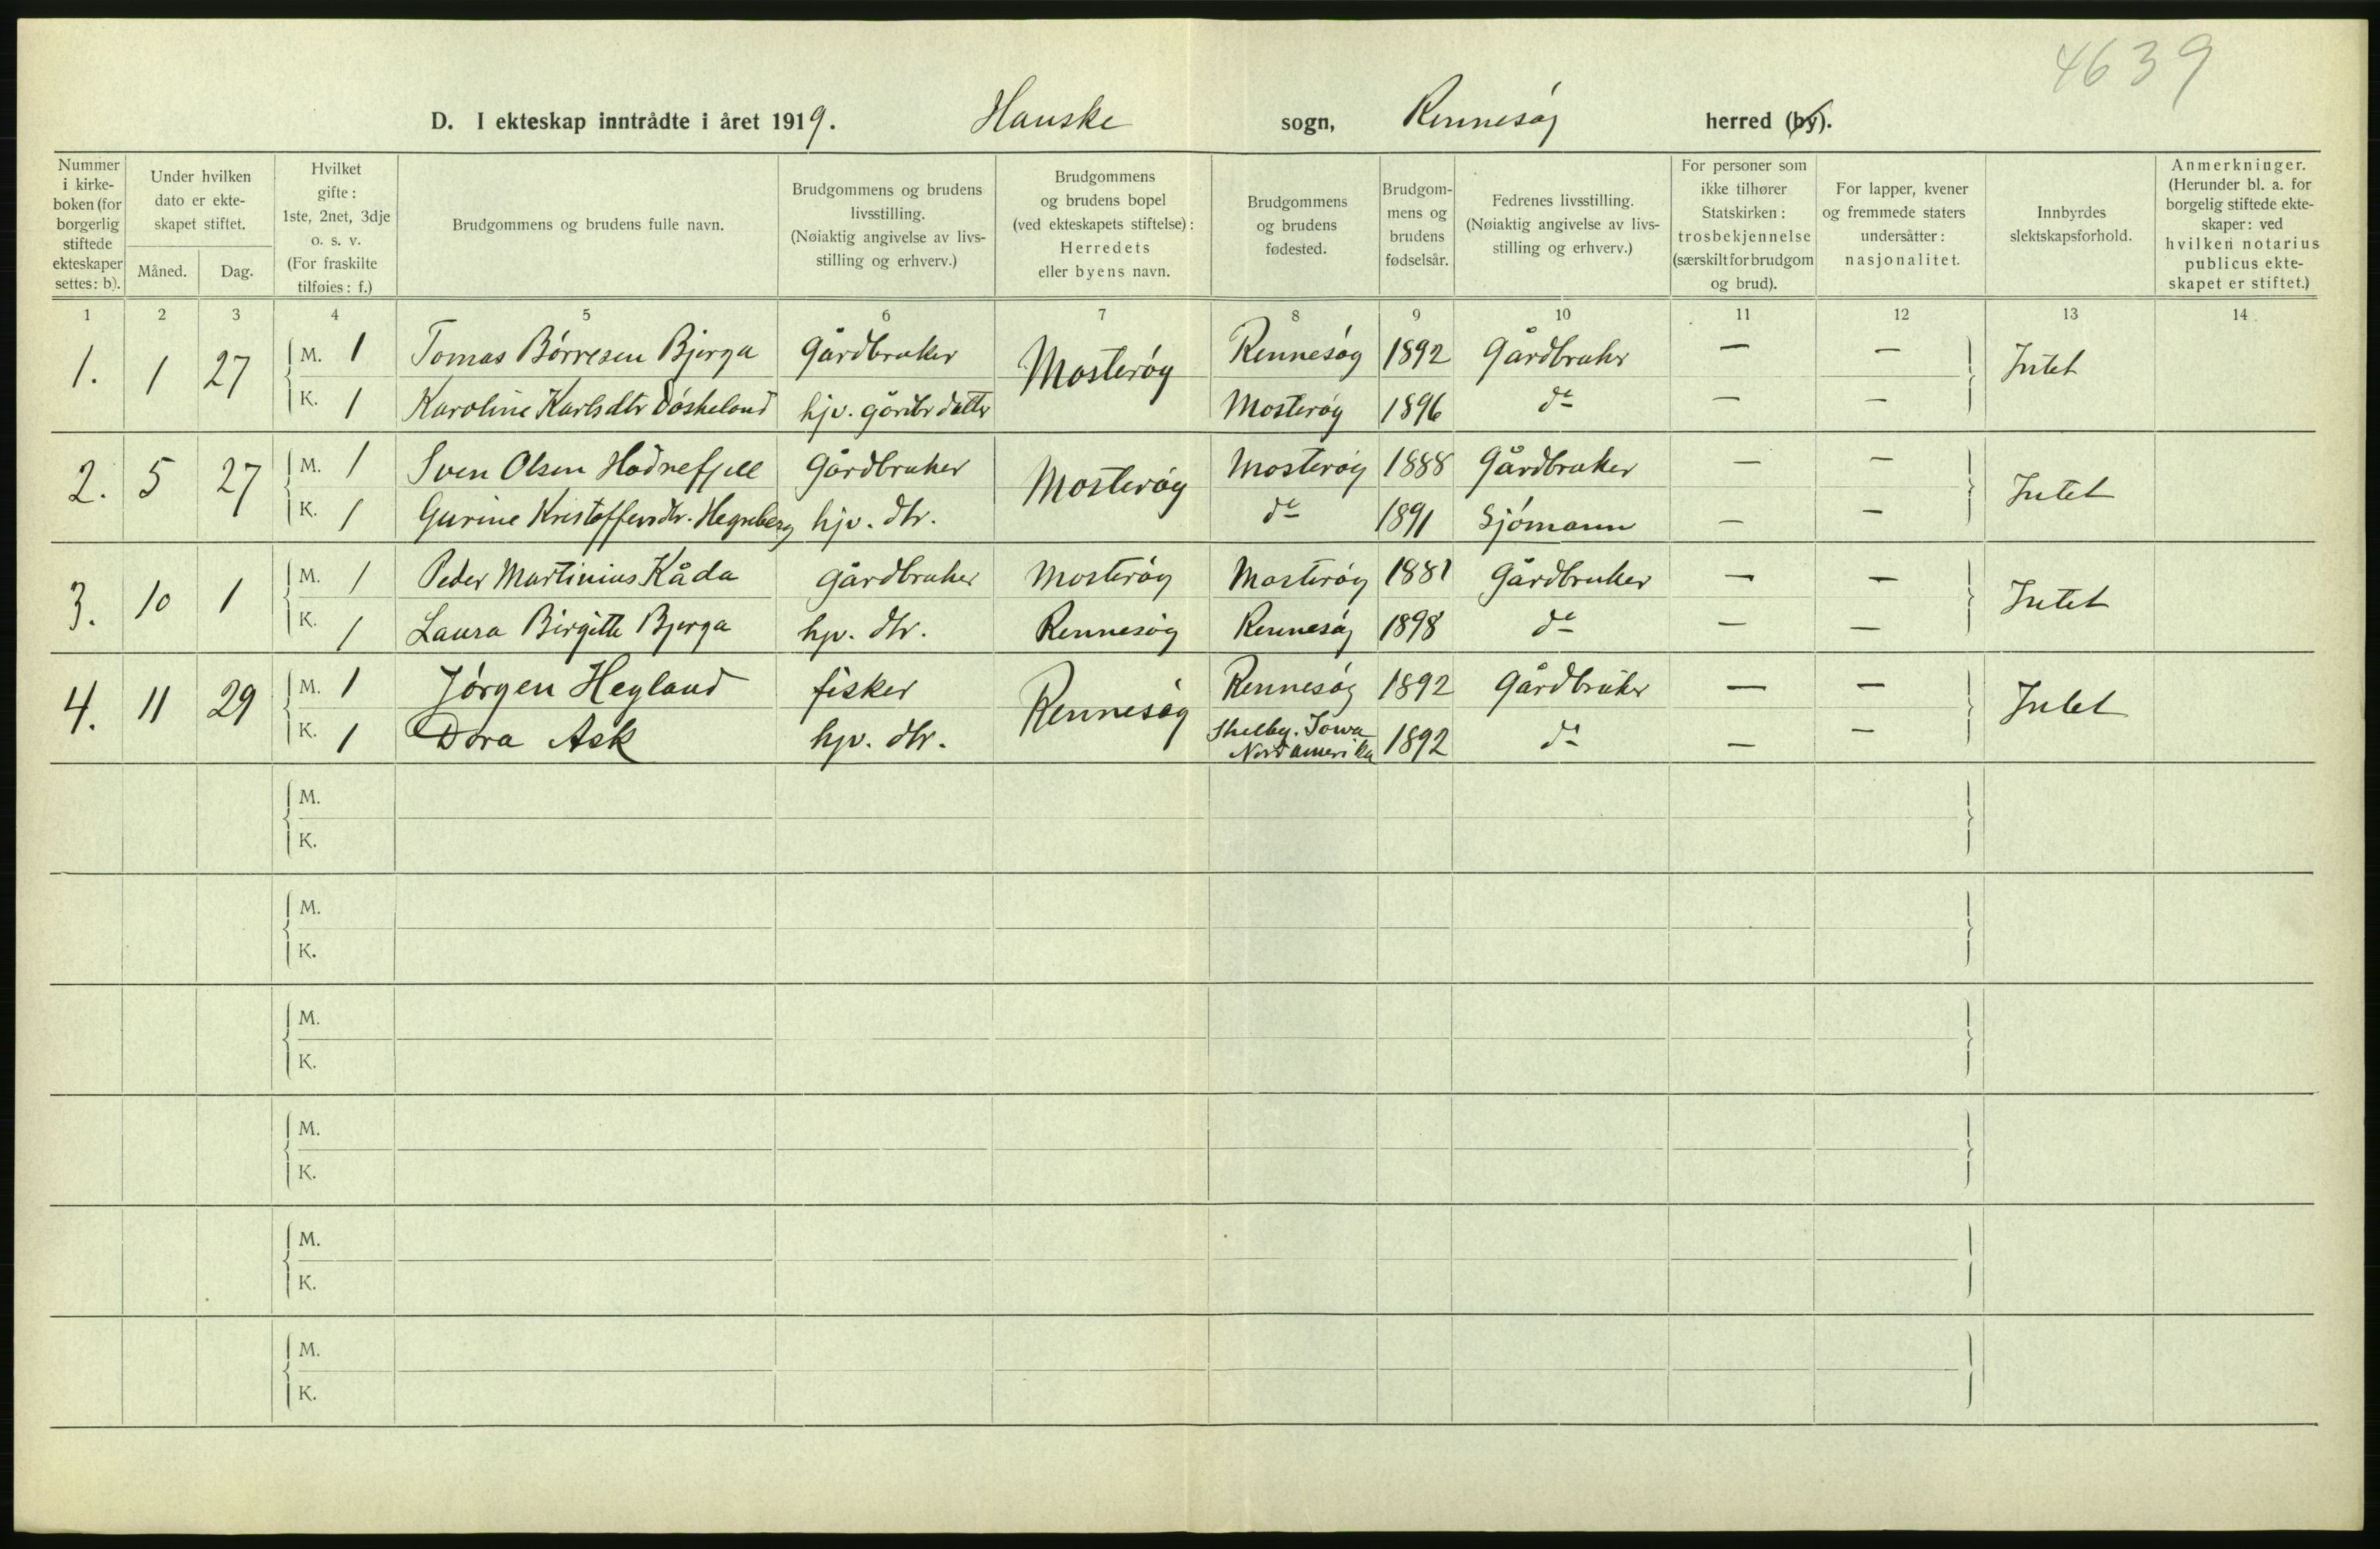 4639
D. I ekteskap inntrådte i året 1919. Hauske sogn, Rennesøy herred (by).
Nummer i kirkeboken (for borgerlig stiftede ekteskaper settes: b).
Under hvilken dato er ekteskapet stiftet.
Måned. Dag.
Hvilket gifte: 1ste, 2net, 3dje o. s. v. (For fraskilte tilføies: f.)
Brudgommens og brudens fulle navn.
Brudgommens og brudens livsstilling. (Nøiaktig angivelse av livsstilling og erhverv.)
Brudgommens og brudens bopel (ved ekteskapets stiftelse): Herredets eller byens navn.
Brudgommens og brudens fødested.
Brudgommens og brudens fødselsår.
Fedrenes livsstilling. (Nøiaktig angivelse av livsstilling og erhverv.)
For personer som ikke tilhører Statskirken: trosbekjennelse (særskilt for brudgom og brud).
For lapper, kvener og fremmede staters undersåtter: nasjonalitet.
Innbyrdes slektskapsforhold.
Anmerkninger. (Herunder bl. a. for borgelig stiftede ekteskaper: ved hvilken notarius publicus ekteskapet er stiftet.)
1 2 3 4 5 6 7 8 9 10 11 12 13 14
1. 1 27 M. 1 Tomas Børresen Bjerga gårdbruker Mosterøy Rennesøy 1892 Gårdbruker — — Intet
K. 1 Karoline Karlsdtr Døskeland hjv. gårdbr datter Mosterøy 1896 do — —
2. 5 27 M. 1 Sven Olsen Hodnefjell Gårdbruker Mosterøy Mosterøy 1888 Gårdbruker — — Intet
K. 1 Gurine Kristoffersdtr. Hegreberg hjv. dtr. do 1891 Sjømann — —
3. 10 1 M. 1 Peder Martinius Kåda gårdbruker Mosterøy Mosterøy 1881 Gårdbruker — — Intet
K. 1 Laura Birgitte Bjerga hjv. dtr. Rennesøy Rennesøy 1898 do — —
4. 11 29 M. 1 Jørgen Hegland fisker Rennesøy Rennesøy 1892 Gårdbruker — — Intet
K. 1 Dora Ask hjv. dtr. Shelby. Iowa Nordamerika 1892 do — —
M.
K.
M.
K.
M.
K.
M.
K.
M.
K.
M.
K.